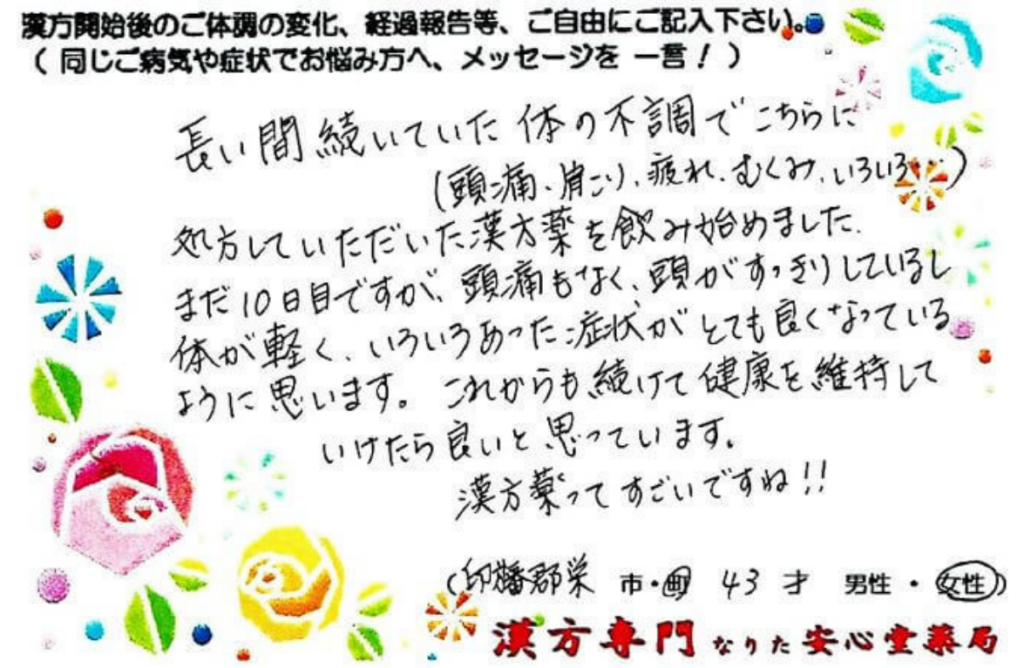 漢方開始後のご体調の変化、経過報告等、ご自由にご記入下さい。
( 同じご病気や症状でお悩み方へ、メッセージを 一言！ )
長い間続いていた体の不調でこちらに
(頭痛、肩こり、疲れ、むくみ、いろいろ…)
処方していただいた漢方薬を飲み始めました。
まだ10日目ですが、頭痛もなく、頭がすっきりしているし
体が軽く、いろいろあった症状がとても良くなっている
ように思います。これからも続けて健康を維持して
いけたら良いと思っています。
漢方薬ってすごいですね!!
(印旛郡栄 市・町 43 才 男性・女性)
漢方専門 なりた 安心堂薬局